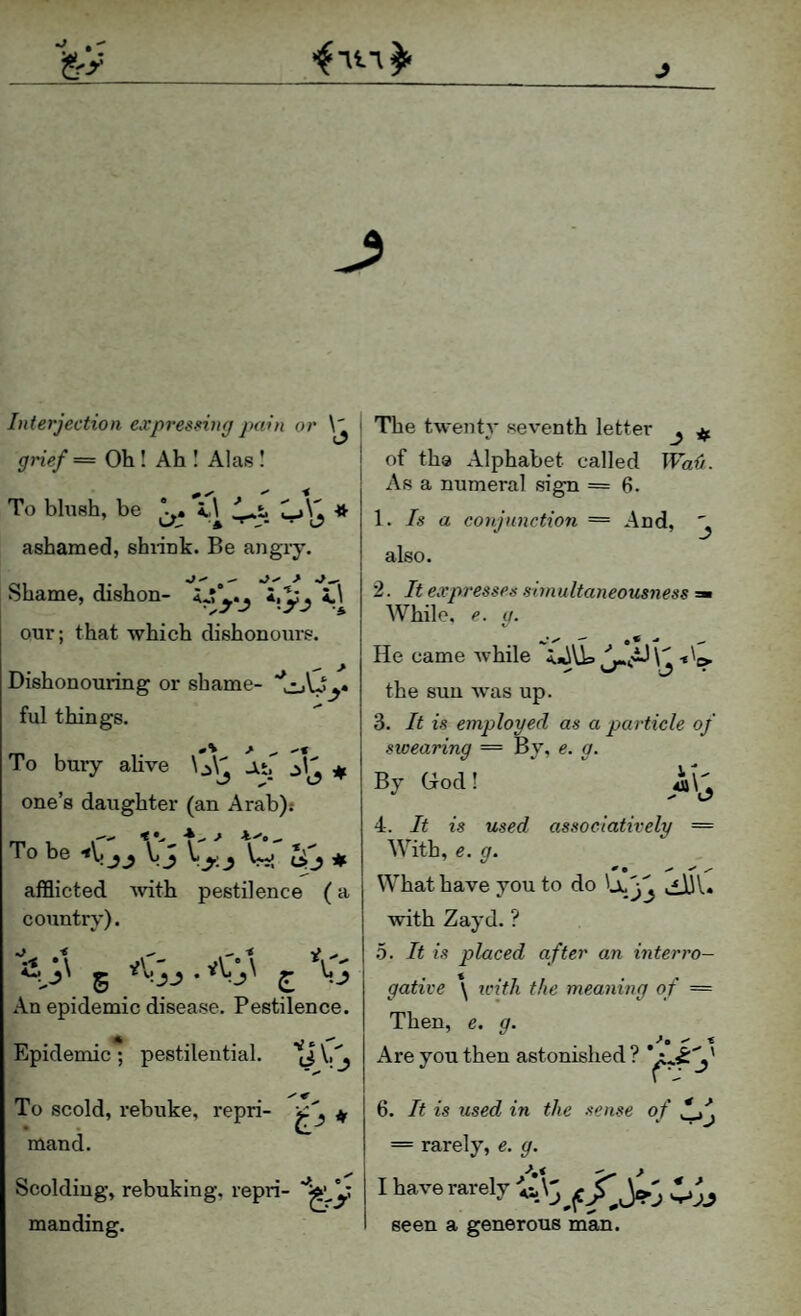 وبخ و
و
The twenty seventh letter و *
of the Alphabet called Waû.
As a numeral sign = 6.
1. Is a conjunction = And, وَ
also.
2. It expresses simultaneousness =
While, e. g.
He came while جاء والشمس طالعة
the sun was up.
3. It is employed as a particle of
swearing = By, e. g.
By God! والله
4. It is used associatively =
With, e. g.
What have you to do مالك وزيدا
with Zayd. ?
5. It is placed after an interro-
gative أ with the meaning of =
Then, e. g.
Are you then astonished ? أوعجبتم
6. It is used in the sense of رب
= rarely, e. g.
I have rarely ورب رجل كريم رأيته
seen a generous man.
Interjection expressing pain or وا
grief = Oh ! Ah ! Alas !
To blush, be * وأب يئب إبة من
ashamed, shrink. Be angry.
Shame, dishon- إبة وتؤبة وموئبة
our; that which dishonours.
Dishonouring or shame- موئبات
ful things.
To bury alive * وأد يئد وأدا
one's daughter (an Arab).
To be * وبئ يوبأ وبأ ووباء
afflicted with pestilence (a
country).
وبأ ج أوباء . ووباء ج أوبئة
An epidemic disease. Pestilence.
Epidemic ; pestilential. وبائي
To scold, rebuke, repri- * وبخ
mand.
Scolding, rebuking, repri- توبيخ
manding.